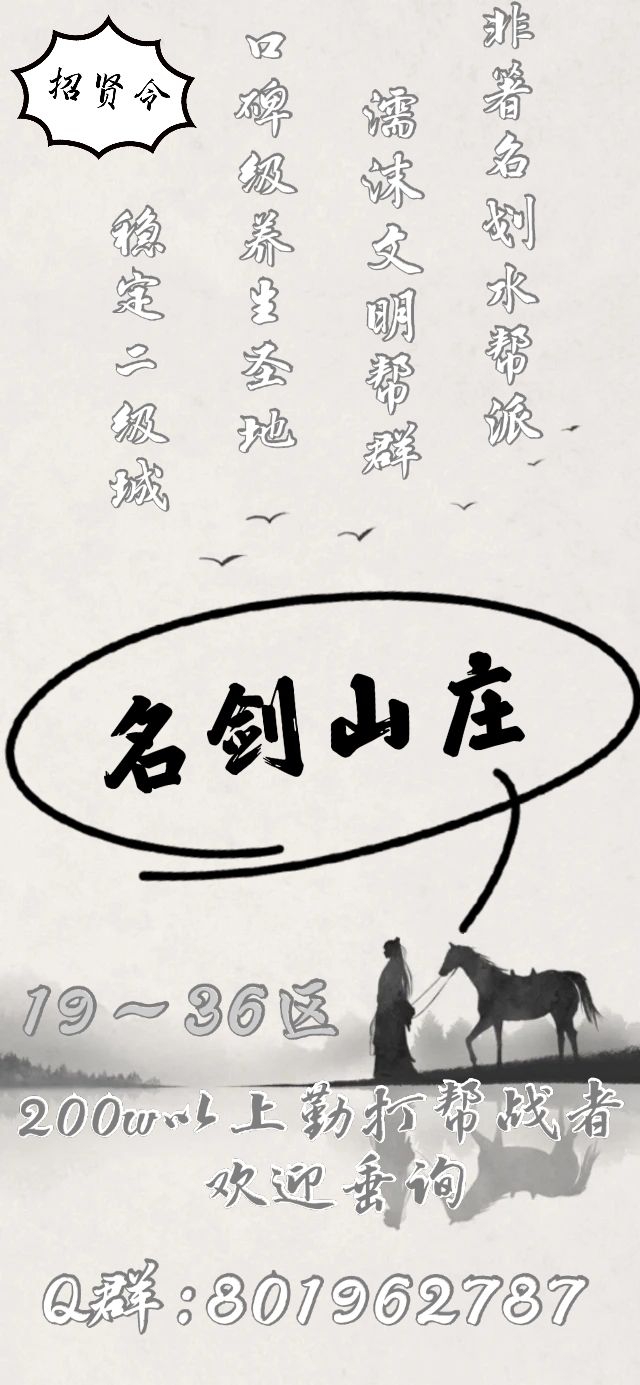 招贤令
非著名划水帮派
濡沫文明帮群
口碑级养生圣地
稳定二级城
名剑山庄
19～36区
200w以上勤打帮战者
欢迎垂询
Q群:801962787